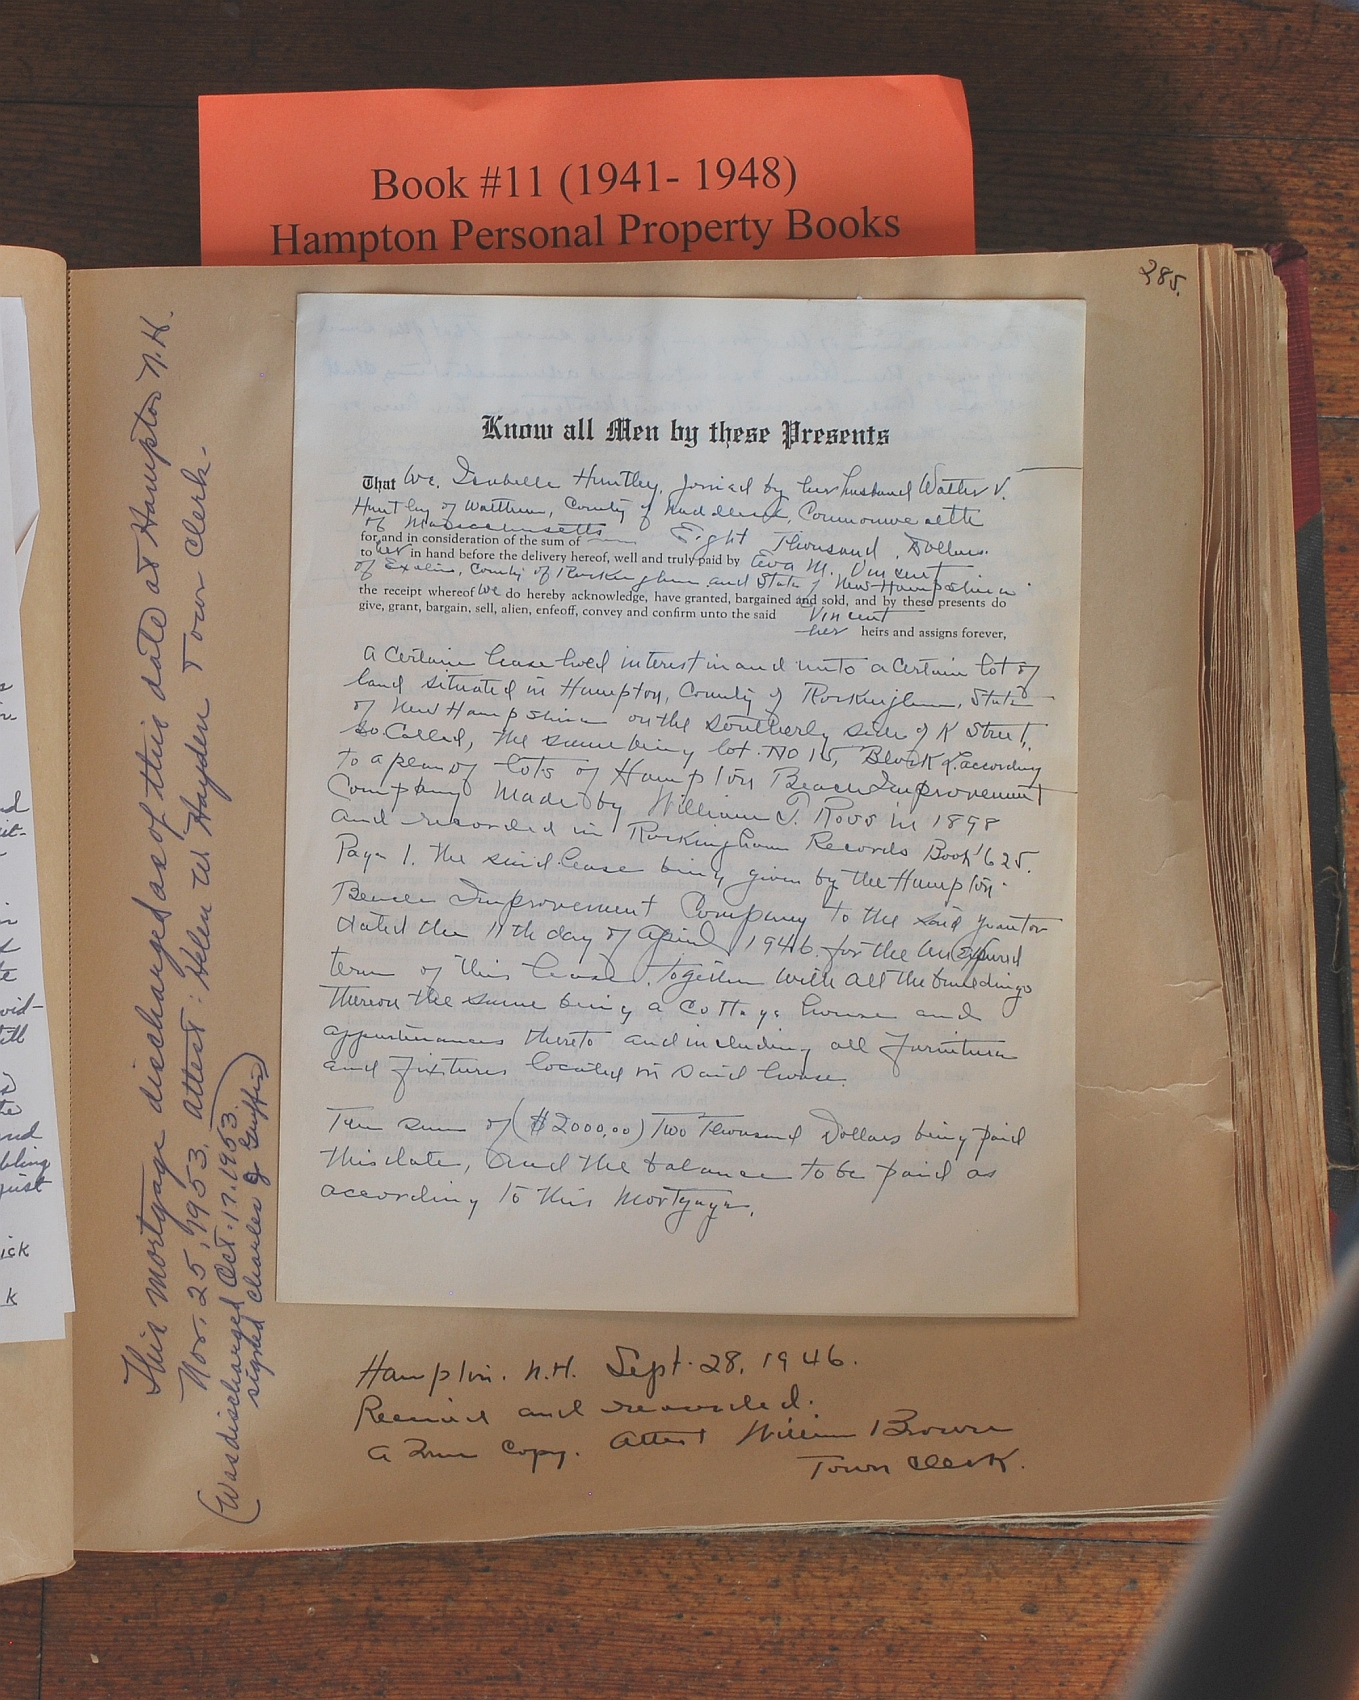 Book #11 (1941- 1948)
Hampton Personal Property Books
285.
Know all Men by these Presents
That We, Isabelle Huntley, joined by her husband Walter V.
Huntley of Waltham, County of Middlesex, Commonwealth
of Massachusetts
for and in consideration of the sum of Eight Thousand Dollars
to her in hand before the delivery hereof, well and truly paid by Eva M. Vincent
of Exeter, County of Rockingham and State of New Hampshire
the receipt whereof we do hereby acknowledge, have granted, bargained and sold, and by these presents do
give, grant, bargain, sell, alien, enfeoff, convey and confirm unto the said Vincent
her heirs and assigns forever,
A Certain lease hold interest in and unto a certain lot of
land situated in Hampton, County of Rockingham, State
of New Hampshire on the Southerly side of K Street,
So Called, the same being lot No 15, Block L. according
to a plan of lots of Hampton Beach Improvement
Company made by William T. Ross in 1898
and recorded in Rockingham Records Book 625.
Page 1. the said lease being given by the Hampton
Beach Improvement Company to the said grantor
dated the 11th day of April 1946. for the unexpired
term of this lease. Together with all the buildings
thereon the same being a Cottage house and
appurtenances thereto and including all furniture
and fixtures located in said house.
The sum of ($2000.00) Two Thousand Dollars being paid
this date, and the balance to be paid as
according to this Mortgage.
Hampton. N.H. Sept. 28, 1946.
Received and recorded.
A True Copy. Attest William Brown
Town Clerk.
This mortgage discharged as of this date at Hampton N.H.
Nov. 25, 1953. attest: Helen W. Hayden Town Clerk.
(Was discharged Oct. 17. 1953.
signed Charles J Griffin)